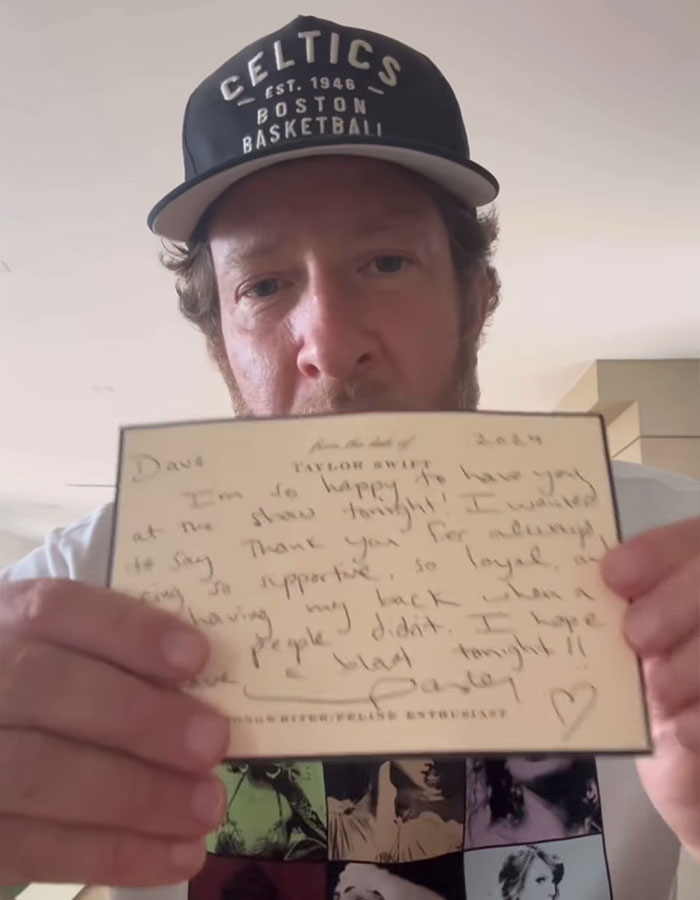 CELTICS
EST. 1946
BOSTON
BASKETBALL
from the desk of 2024
Dave TAYLOR SWIFT
I'm so happy to have you
at the show tonight! I wanted
to say Thank you for always
so supportive, so loyal, an
having my back when a
people didn't. I hope
a blast tonight!!
ONGWRITER/FELINE ENTHUSIAST